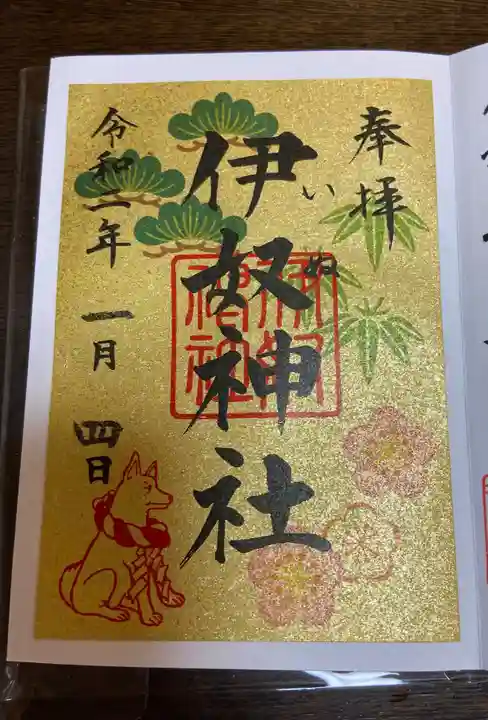 奉拝
いぬ
伊奴神社
令和二年一月四日